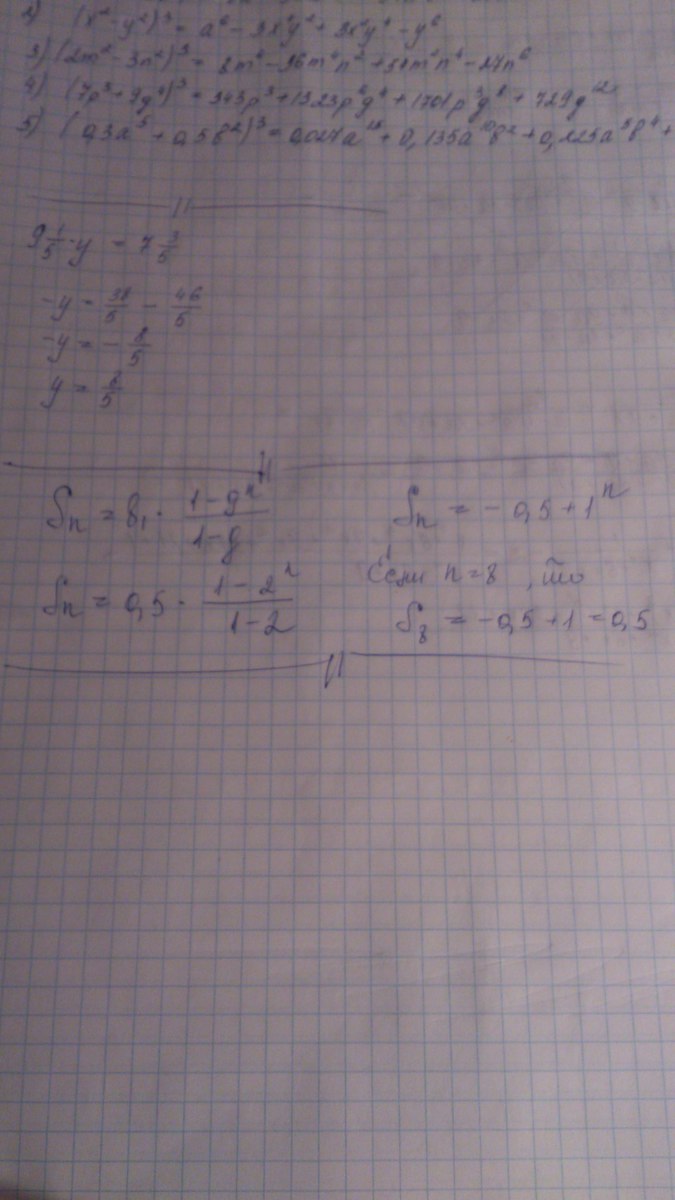 2) (x² - y²)³ = a⁶ - 3x⁴y² + 3x²y⁴ - y⁶
3) (2m² - 3n²)³ = 8m⁶ - 36m⁴n² + 54m²n⁴ - 27n⁶
4) (7p³ + 9q⁴)³ = 343p⁹ + 1323p⁶q⁴ + 1701p³q⁸ + 729q¹²
5) (0,3a⁵ + 0,5b²)³ = 0,027a¹⁵ + 0,135a¹⁰b² + 0,225a⁵b⁴ +
9 1/5 - y = 7 3/5
-y = 38/5 - 46/5
-y = - 8/5
y = 8/5
Sn = b₁ · (1-qⁿ)/(1-q)
Sn = 0,5 · (1-2ⁿ)/(1-2)
Sn = -0,5 + 1ⁿ
Если n=8, то
S₈ = -0,5 + 1 = 0,5